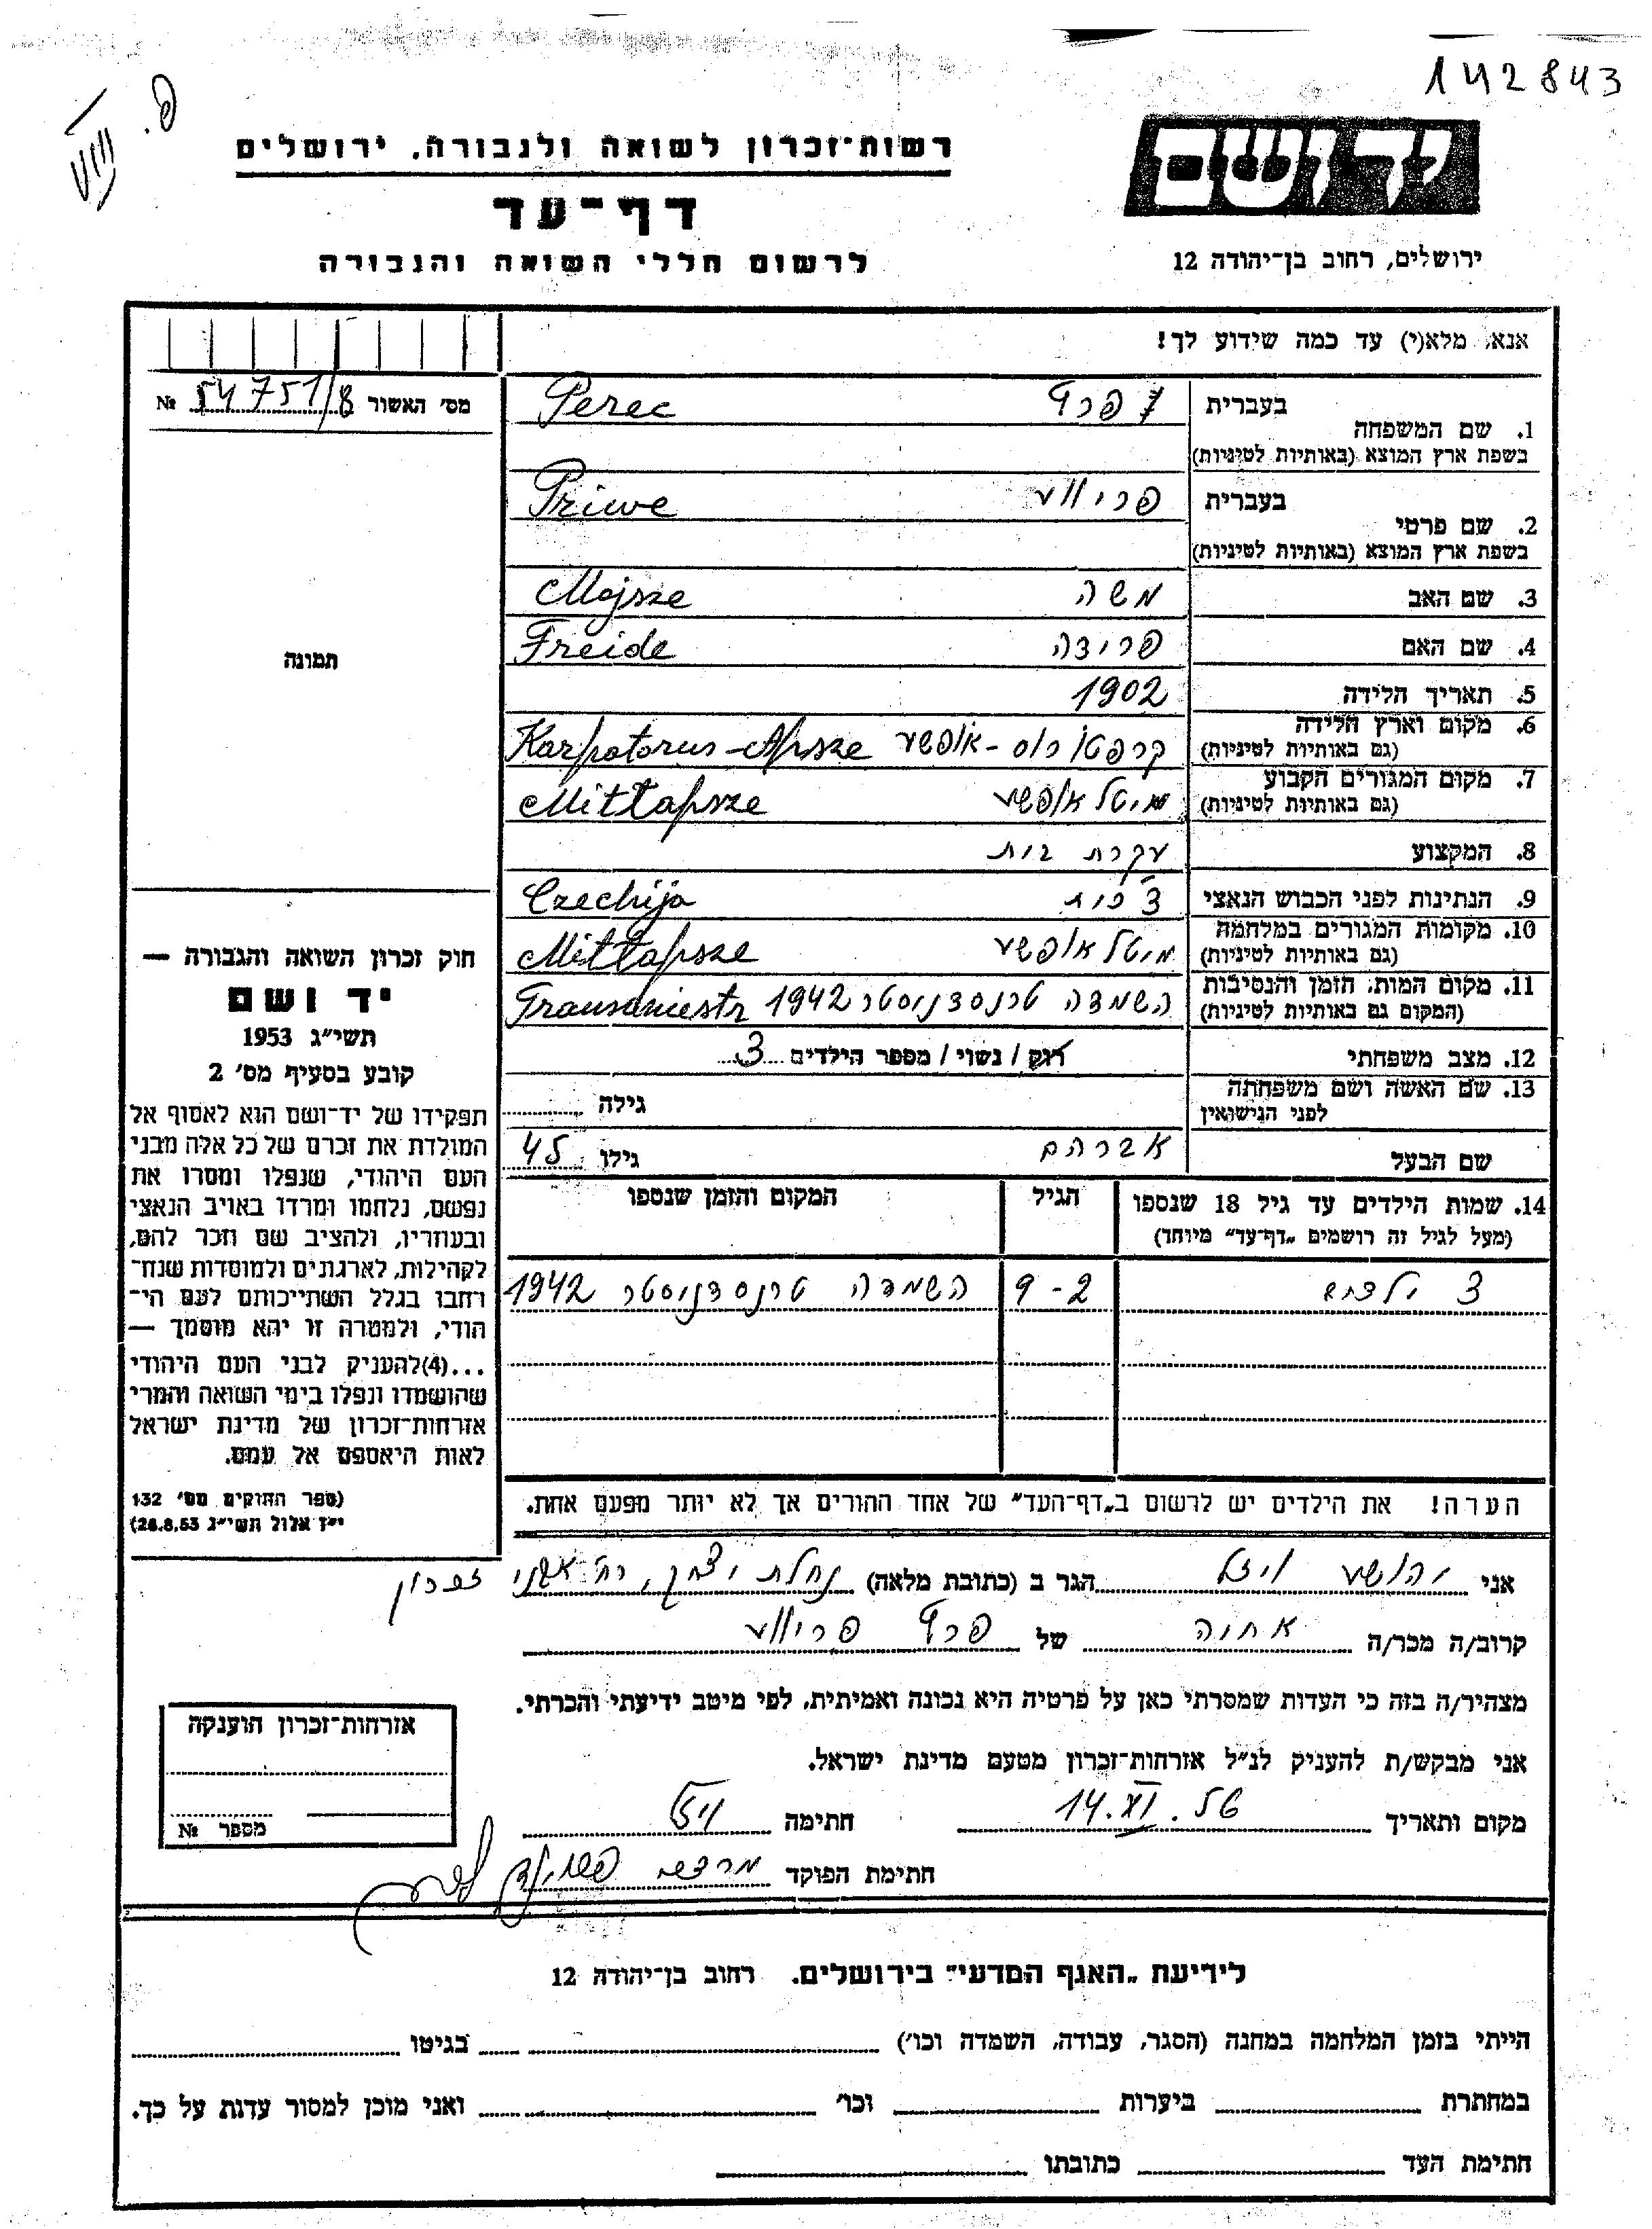 142843
יד ושם
ירושלים, רחוב בן־יהודה 12
רשות־זכרון לשואה ולגבורה, ירושלים
דף־עד
לרשום חללי השואה והגבורה
אנא, מלא(י) עד כמה שידוע לך!
מס׳ האשור 54751/8 №
תמונה
חוק זכרון השואה והגבורה —
יד ושם
תשי״ג 1953
קובע בסעיף מס׳ 2
תפקידו של יד־ושם הוא לאסוף אל
המולדת את זכרם של כל אלה מבני
העם היהודי, שנפלו ומסרו את
נפשם, נלחמו ומרדו באויב הנאצי
ובעוזריו, ולהציב שם וזכר להם,
לקהילות, לארגונים ולמוסדות שנח־
רבו בגלל השתייכותם לעם הי־
הודי, ולמטרה זו יהא מוסמך —
...(4) להעניק לבני העם היהודי
שהושמדו ונפלו בימי השואה והמרי
אזרחות־זכרון של מדינת ישראל
לאות היאספם אל עמם.
(ספר החוקים מס׳ 132
י״ז אלול תשי״ג 28.8.53)
1. שם המשפחה בעברית פרץ Perec
בשפת ארץ המוצא (באותיות לטיניות)
2. שם פרטי בעברית פריווע Priwe
בשפת ארץ המוצא (באותיות לטיניות)
3. שם האב משה Mojsze
4. שם האם פרידה Freide
5. תאריך הלידה 1902
6. מקום וארץ הלידה קרפטורוס - אפשע Karpatorus - Apsze
(גם באותיות לטיניות)
7. מקום המגורים הקבוע מיטל אפשע Mittapsze
(גם באותיות לטיניות)
8. המקצוע עקרת בית
9. הנתינות לפני הכבוש הנאצי צ׳כית Czechija
10. מקומות המגורים במלחמה מיטל אפשע Mittapsze
(גם באותיות לטיניות)
11. מקום המות, הזמן והנסיבות השמדה טרנסדניסטר 1942 Transdniestr
(המקום גם באותיות לטיניות)
12. מצב משפחתי רוק / נשוי / מספר הילדים 3
13. שם האשה ושם משפחתה גילה
לפני הנישואין
שם הבעל אברהם גילו 45
14. שמות הילדים עד גיל 18 שנספו הגיל המקום והזמן שנספו
(מעל לגיל זה רושמים „דף־עד״ מיוחד)
3 ילדים 2 - 9 השמדה טרנסדניסטר 1942
הערה! את הילדים יש לרשום ב„דף־העד״ של אחד ההורים אך לא יותר מפעם אחת.
אני יהושע ויזל הגר ב (כתובת מלאה) נחלת יצחק, רח׳
קרוב/ה מכר/ה אחיה של פרץ פריווע
מצהיר/ה בזה כי העדות שמסרתי כאן על פרטיה היא נכונה ואמיתית, לפי מיטב ידיעתי והכרתי.
אני מבקש/ת להעניק לנ״ל אזרחות־זכרון מטעם מדינת ישראל.
מקום ותאריך 14.XI.56 חתימה
חתימת הפוקד מרדכי
אזרחות־זכרון הוענקה
מספר №
לידיעת „האגף המדעי״ בירושלים. רחוב בן־יהודה 12
הייתי בזמן המלחמה במחנה (הסגר, עבודה, השמדה וכו׳) בגיטו
במחתרת ביערות וכו׳ ואני מוכן למסור עדות על כך.
חתימת העד כתובתו